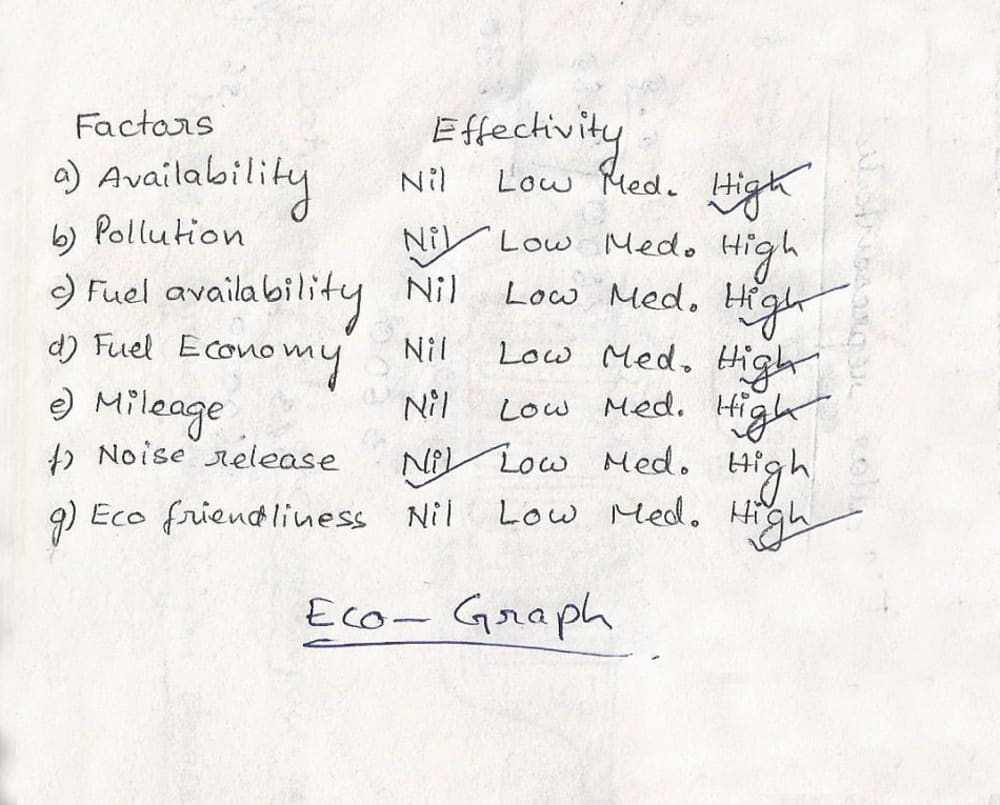 Factors Effectivity
a) Availability Nil Low Med. High
b) Pollution Nil Low Med. High
c) Fuel availability Nil Low Med. High
d) Fuel Economy Nil Low Med. High
e) Mileage Nil Low Med. High
f) Noise release Nil Low Med. High
g) Eco friendliness Nil Low Med. High
Eco- Graph